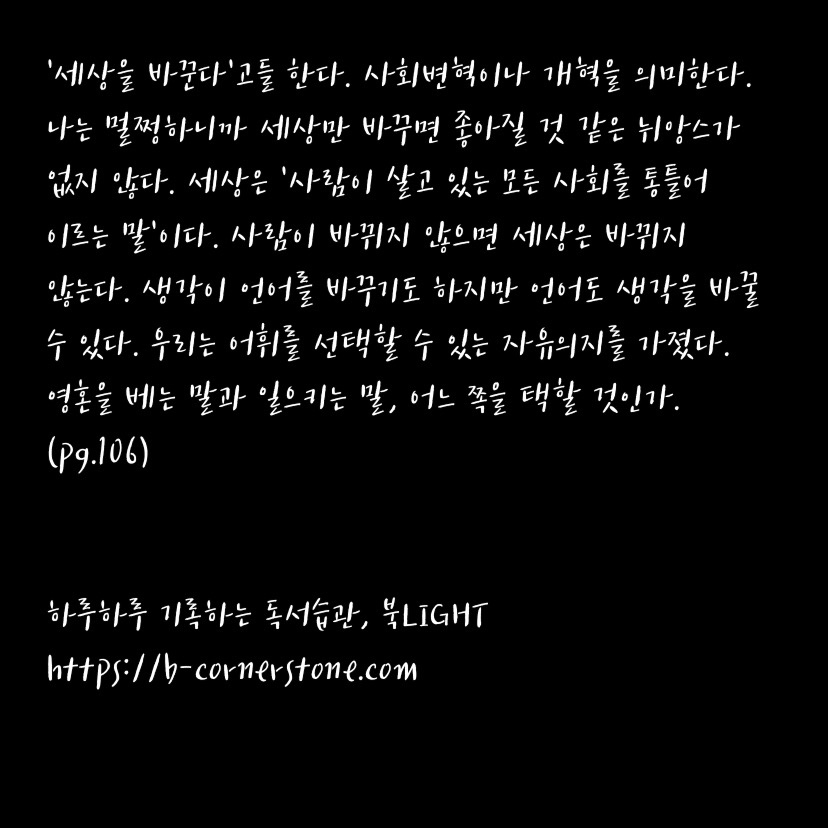 '세상을 바꾼다'고들 한다. 사회변혁이나 개혁을 의미한다.
나는 멀쩡하니까 세상만 바꾸면 좋아질 것 같은 뉘앙스가
없지 않다. 세상은 '사람이 살고 있는 모든 사회를 통틀어
이르는 말'이다. 사람이 바뀌지 않으면 세상은 바뀌지
않는다. 생각이 언어를 바꾸기도 하지만 언어도 생각을 바꿀
수 있다. 우리는 어휘를 선택할 수 있는 자유의지를 가졌다.
영혼을 베는 말과 일으키는 말, 어느 쪽을 택할 것인가.
(pg.106)
하루하루 기록하는 독서습관, 북LIGHT
https://b-cornerstone.com